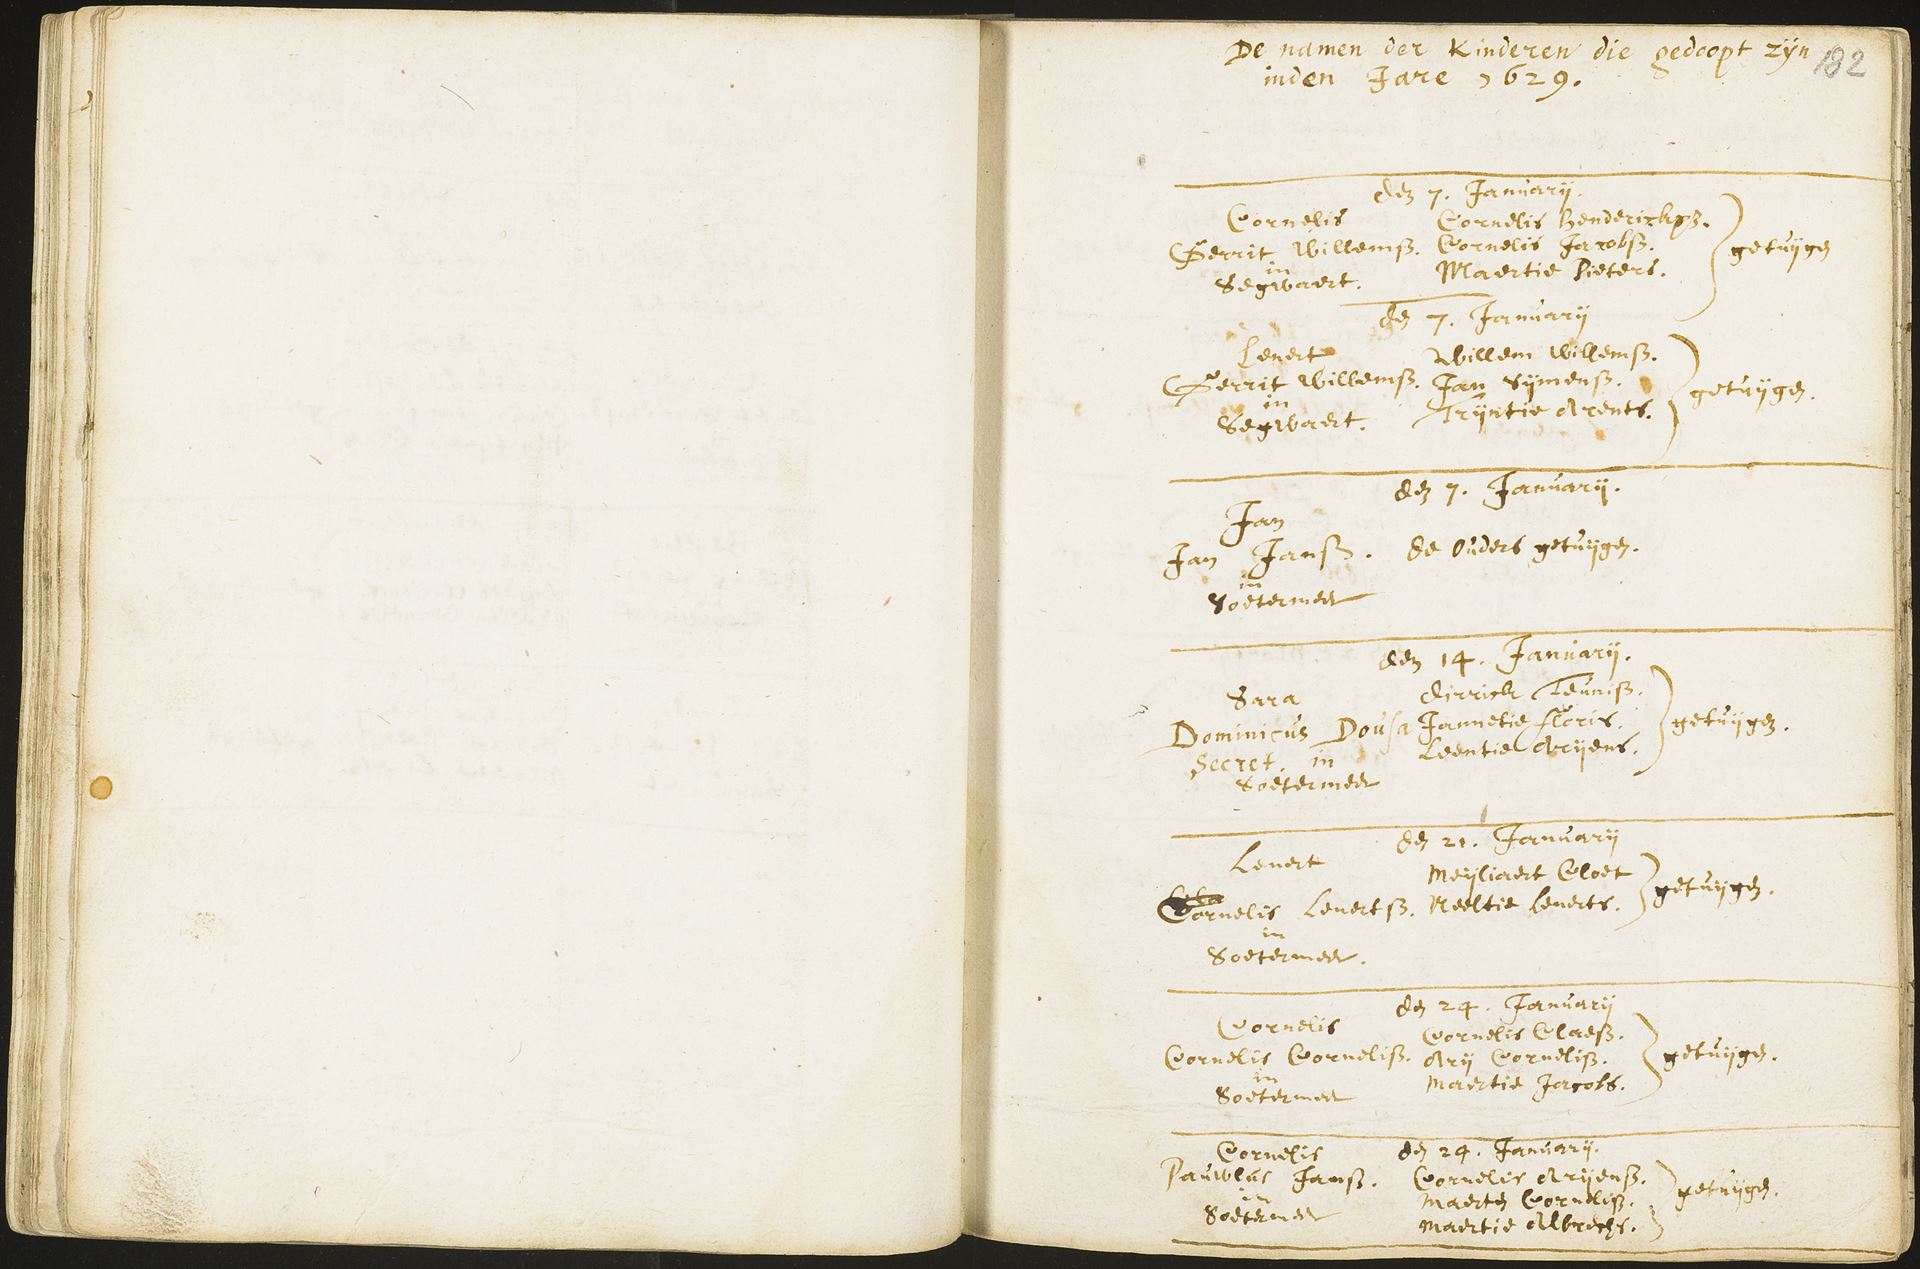 De namen der Kinderen die gedoopt zijn
inden Jare 1629.
182
den 7. Januarij.
Cornelis
Gerrit Willemsz.
in
Segwaert.
Cornelis Henderickxz.
Cornelis Jacobsz.
Maertie Pieters.
getuijgen
den 7. Januarij
Lenert
Gerrit Willemsz.
in
Segwaert.
Willem Willemsz.
Jan Sijmensz.
Trijntie Arents.
getuijgen.
den 7. Januarij.
Jan
Jan Jansz.
in
Soetermeer
de Ouders getuijgen.
den 14. Januarij.
Sara
Dominicus Dousa
Secret. in
Soetermeer
dirrick Teunisz.
Jannetie floris.
Leentie Arijens.
getuijgen.
den 21. Januarij
Lenert
Cornelis Lenertsz.
in
Soetermeer.
Meijliaert Cloet
Neeltie Lenerts.
getuijgen.
den 24. Januarij
Cornelis
Cornelis Cornelisz.
in
Soetermeer
Cornelis Claesz.
Arij Cornelisz.
Maertie Jacobs.
getuijgen.
den 24. Januarij.
Cornelis
Pauwlus Jansz.
in
Soetermeer
Cornelis Arijensz.
Maerten Cornelisz.
Maertie Albrechs.
getuijgen.